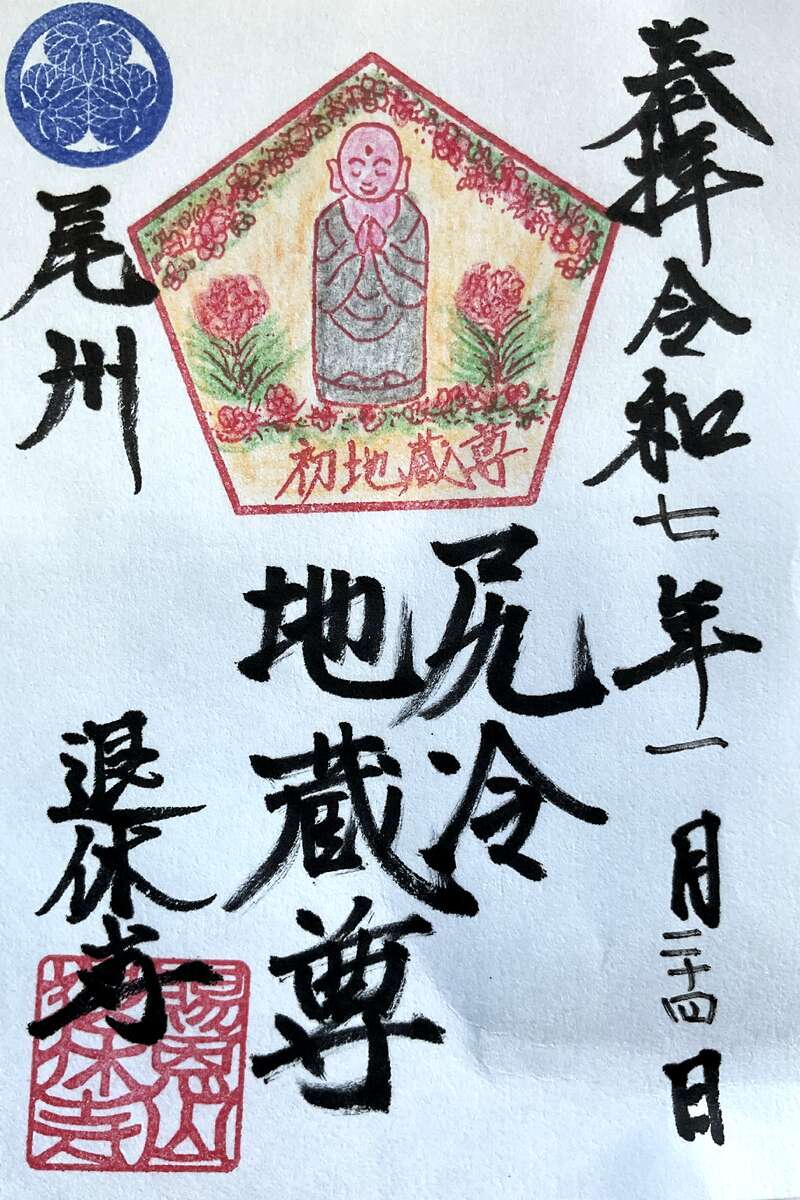 奉拝 令和七年一月二十四日
初地蔵尊
尻冷
地蔵尊
尾州
退休寺
賜恩山
退休寺